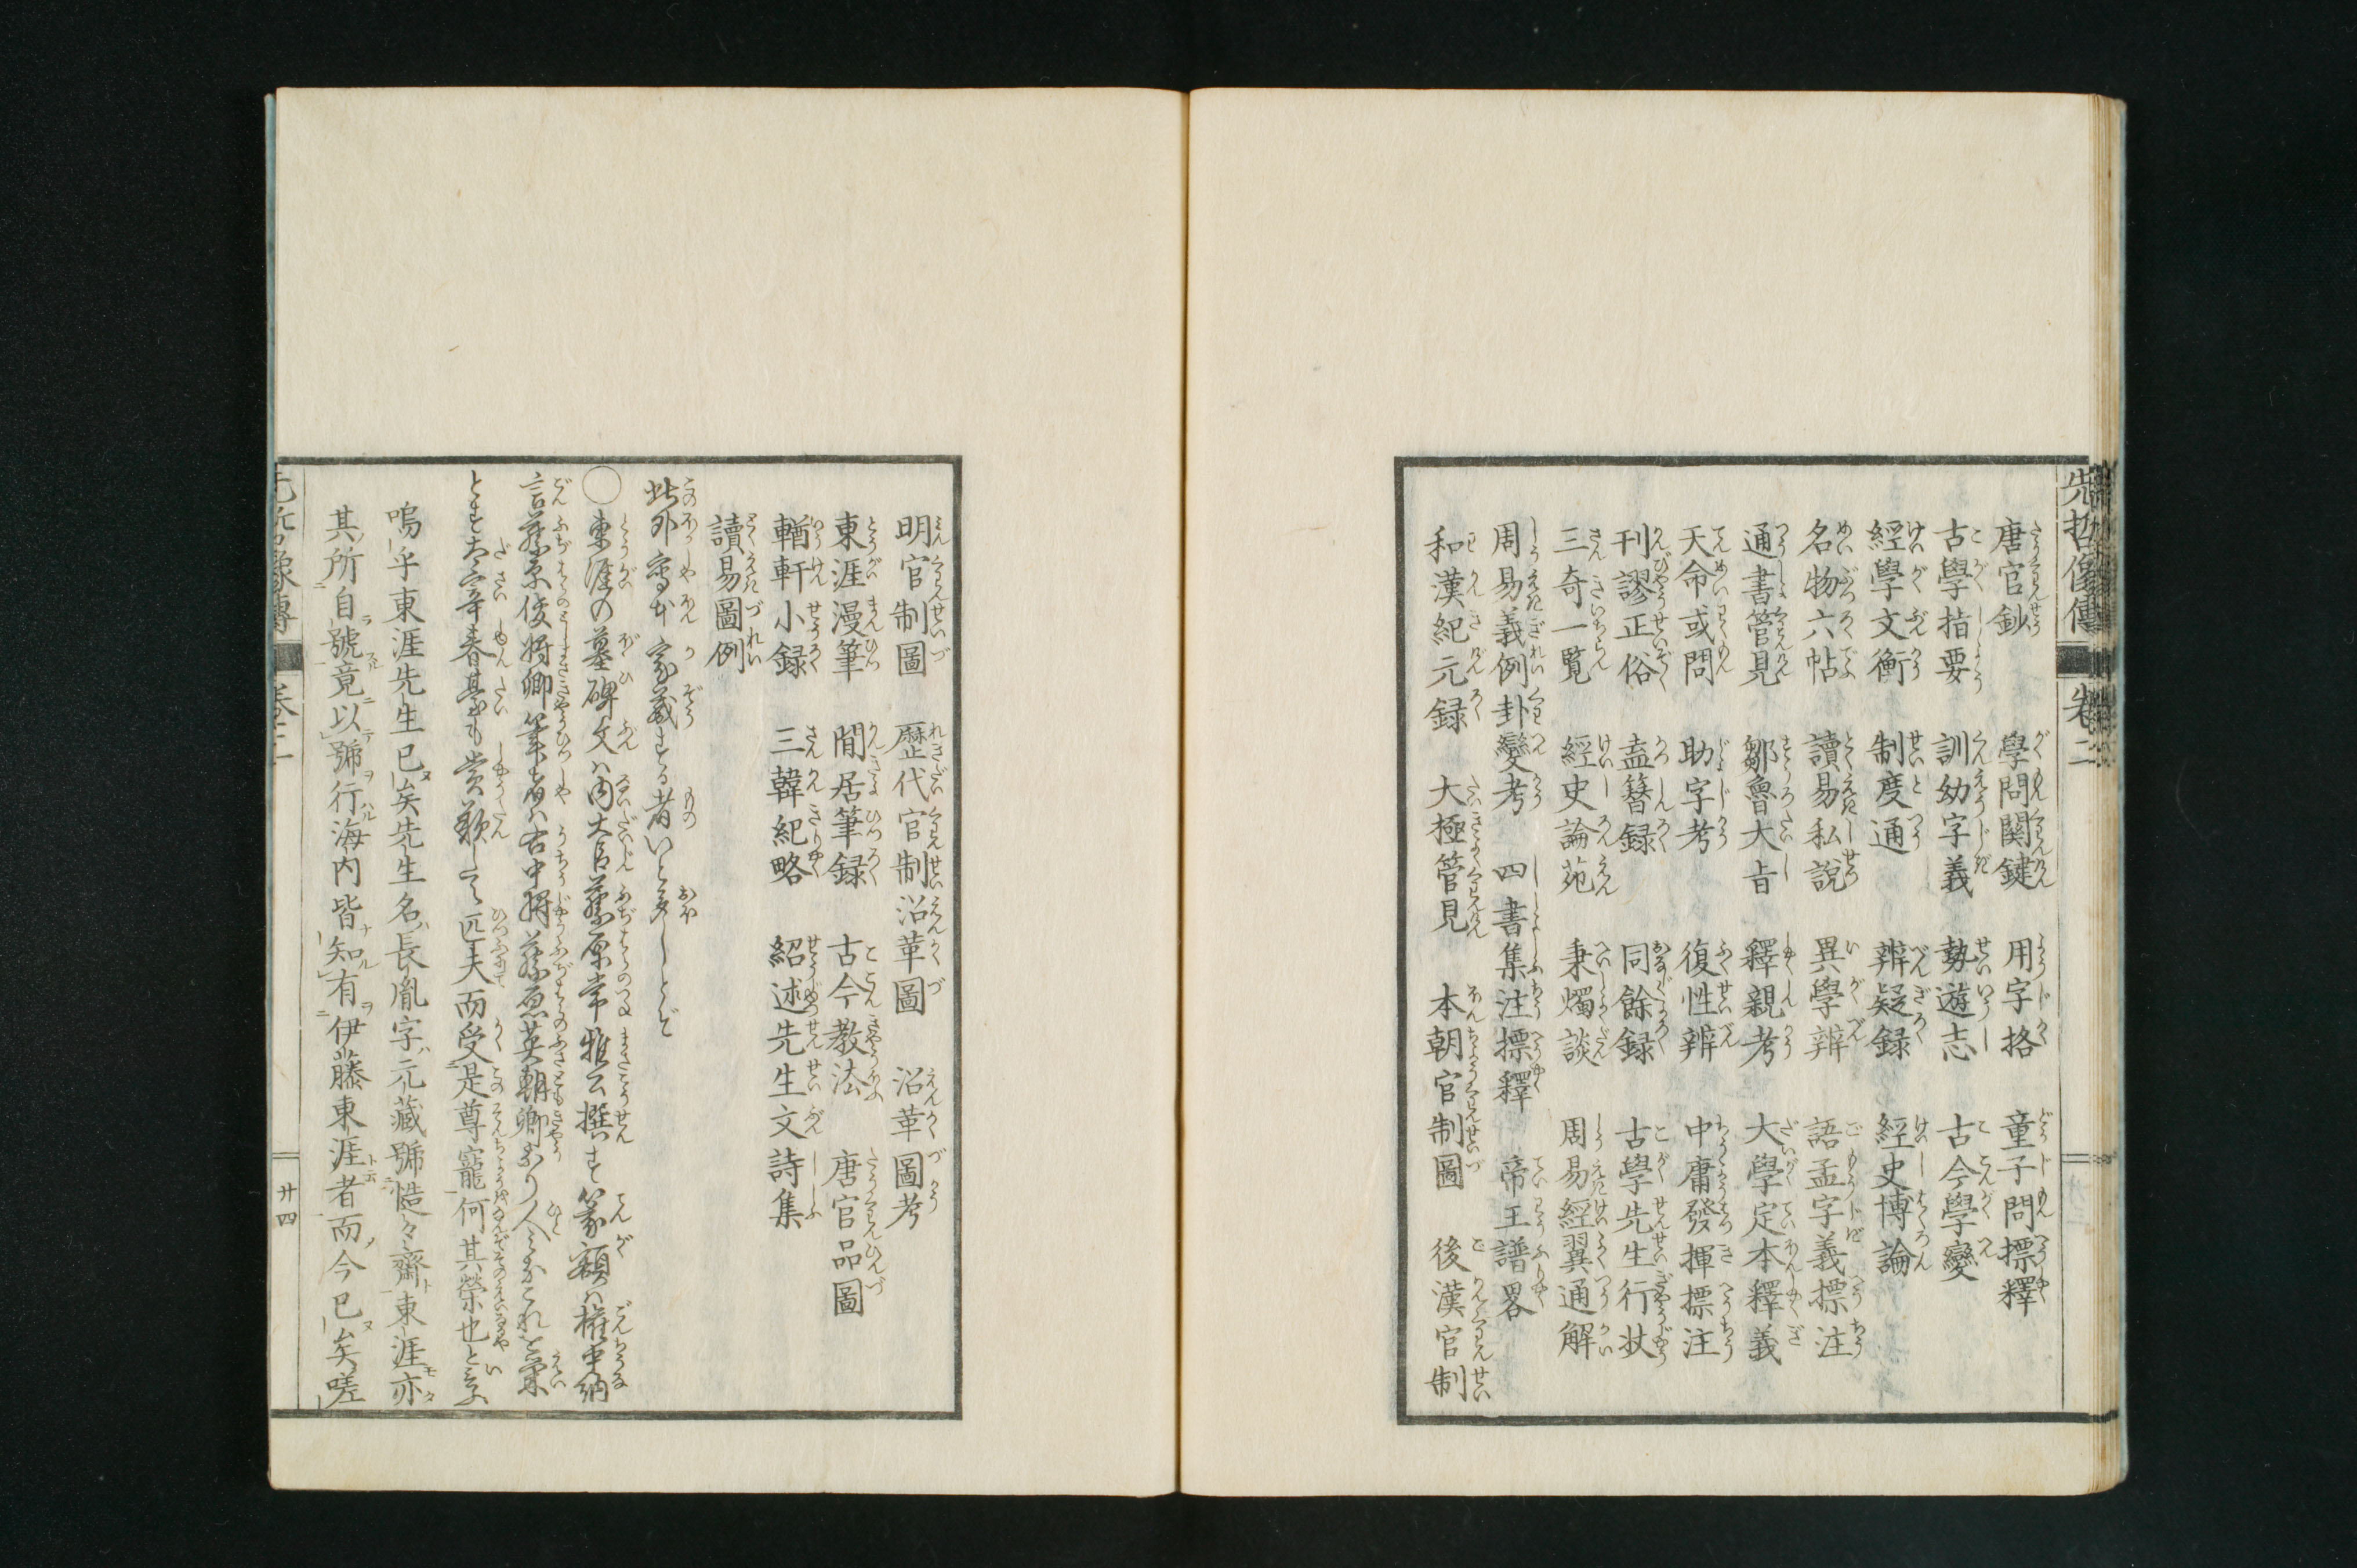 先哲像傳 卷二
唐官鈔 學問關鍵 用字格 童子問標釋
古學指要 訓幼字義 勢遊志 古今學變
經學文衡 制度通 辨疑録 經史博論
名物六帖 讀易私說 異學辨 語孟字義標注
通書管見 鄒魯大旨 釋親考 大學定本釋義
天命或問 助字考 復性辨 中庸發揮標注
刊謬正俗 盍簪録 同餘録 古學先生行狀
三奇一覧 經史論苑 秉燭談 周易經翼通解
周易義例卦變考 四書集注標釋 帝王譜畧
和漢紀元録 大極管見 本朝官制圖 後漢官制
明官制圖 歷代官制沿革圖 沿革圖考
東涯漫筆 閒居筆録 古今教法 唐官品圖
輶軒小録 三韓紀略 紹述先生文詩集
讀易圖例
此外寫本家藏する者いと多しとぞ
○東涯の墓碑文ハ内大臣藤原常雅公撰す篆額ハ権中納
言藤原俊将卿筆者ハ右中将藤原英朝卿なり人みなこれを榮
とす太宰春臺も賞歎して匹夫而受是尊寵何其榮也といふ
嗚乎東涯先生已矣先生名長胤字元藏號慥々齋東涯亦
其所自號竟以號行海内皆知有伊藤東涯者而今已矣嗟
先哲像傳 卷二 廿四